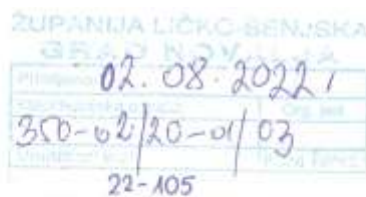 ŽUPANIJA LIČKO-SENJSKA
GRAD NOVALJA
02. 08. 2022,
350-02/20-01/03
Org. jed.
22-105